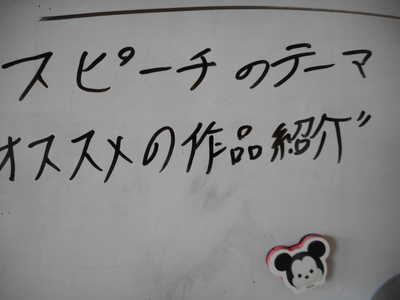 スピーチのテーマ
オススメの作品紹介〞